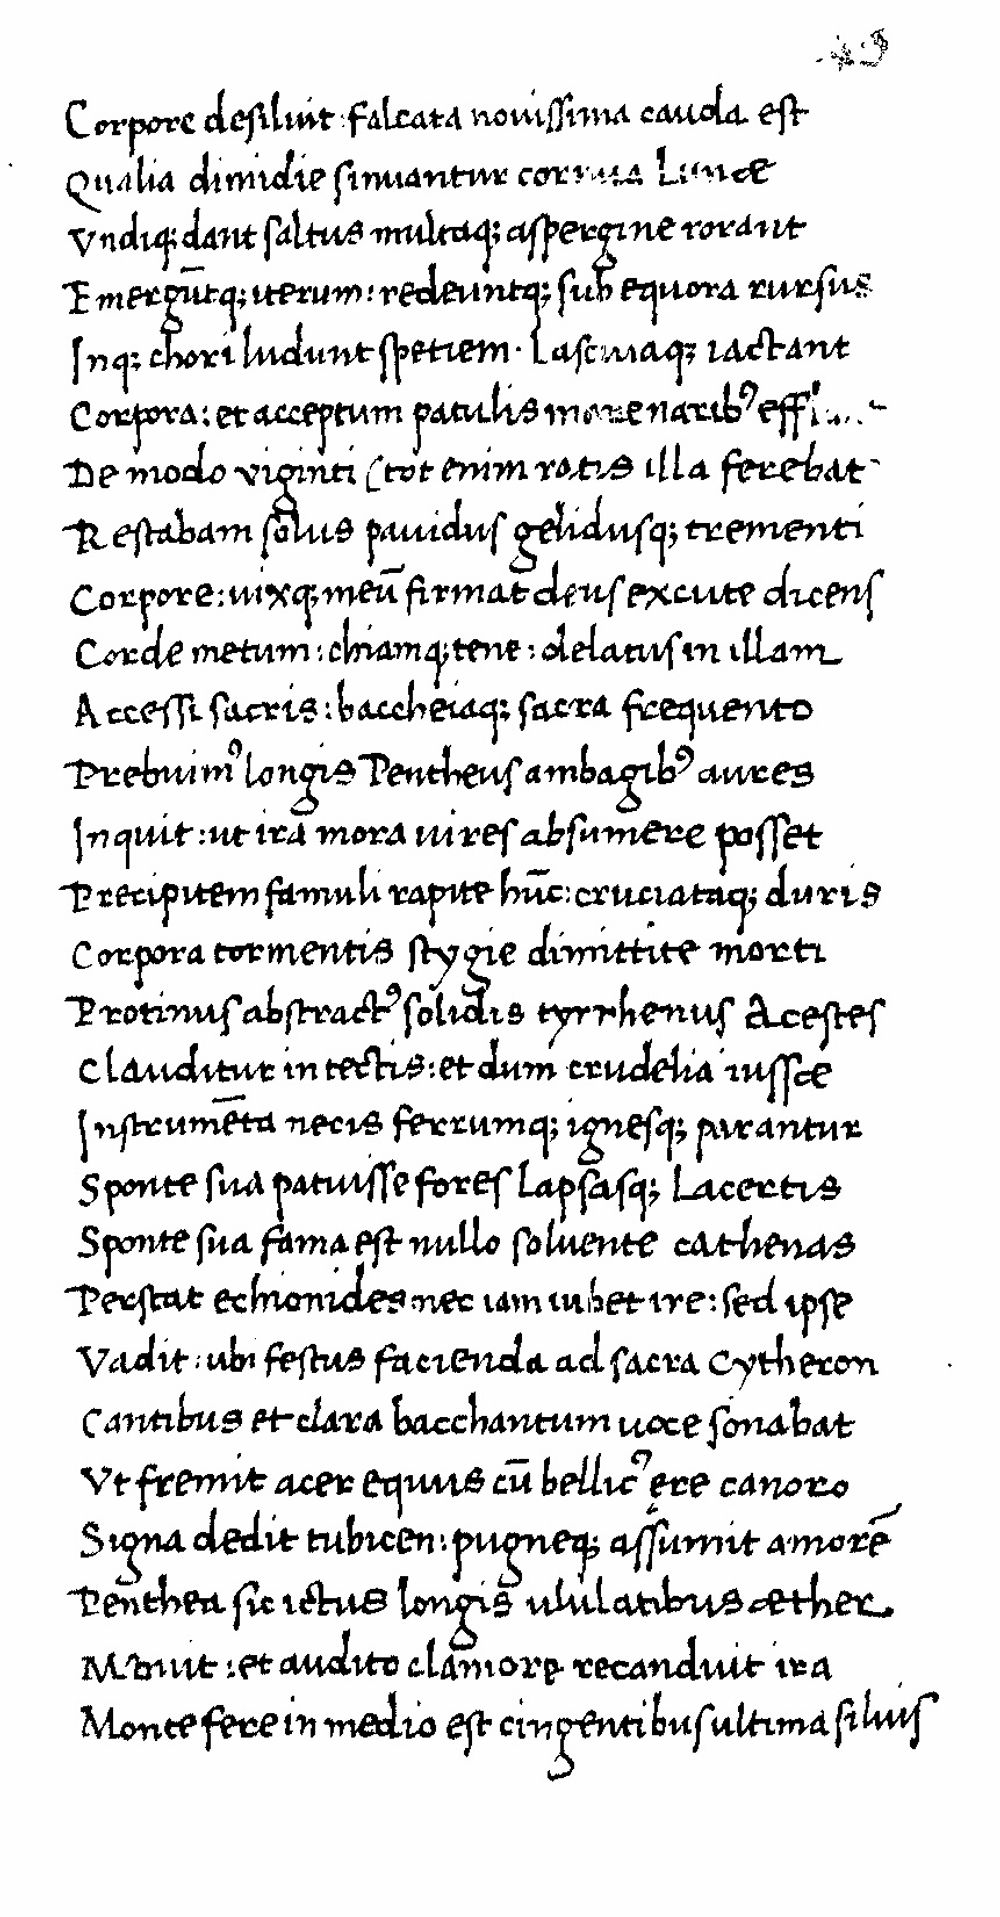 Corpore desiluit : falcata nouissima cauda est
Qualia dimidie sinuantur cornua Lunæ
Vndiq; dant saltus multaq; aspergine rorant
Emergūtq; iterum : redeuntq; sub equora rursus
Inq; chori ludunt spetiem · Lasciuaq; iactant
Corpora : et acceptum patulis mare naribꝰ
De modo viginti (tot enim ratis illa ferebat
Restabam solus pauidus gelidusq; trementi
Corpore : uixq; meū firmat deus excute dicens
Corde metum : chiamq; tene : delatus in illam
Accessi sacris : baccheiaq; sacra frequento
Prebuimꝰ longis Pentheus ambagibꝰ aures
Inquit : ut ira mora uires absumere posset
Precipitem famuli rapite hūc : cruciataq; duris
Corpora tormentis stygie dimittite morti
Protinus abstractꝰ solidis tyrrhenus Acestes
Clauditur in tectis : et dum crudelia iussæ
Instrumēta necis ferrumq; ignesq; parantur
Sponte sua patuisse fores Lapsasq; Lacertis
Sponte sua fama est nullo soluente cathenas
Perstat echionides nec iam iubet ire : sed ipse
Vadit : ubi festus facienda ad sacra Cytheron
Cantibus et clara bacchantum uoce sonabat
Vt fremit acer equus cū bellicꝰ ere canoro
Signa dedit tubicen : pugneq; assumit amorē
Penthea sic ictus longis ululatibus æther
Mouit : et audito clamore recanduit ira
Monte fere in medio est cingentibus ultima siluis